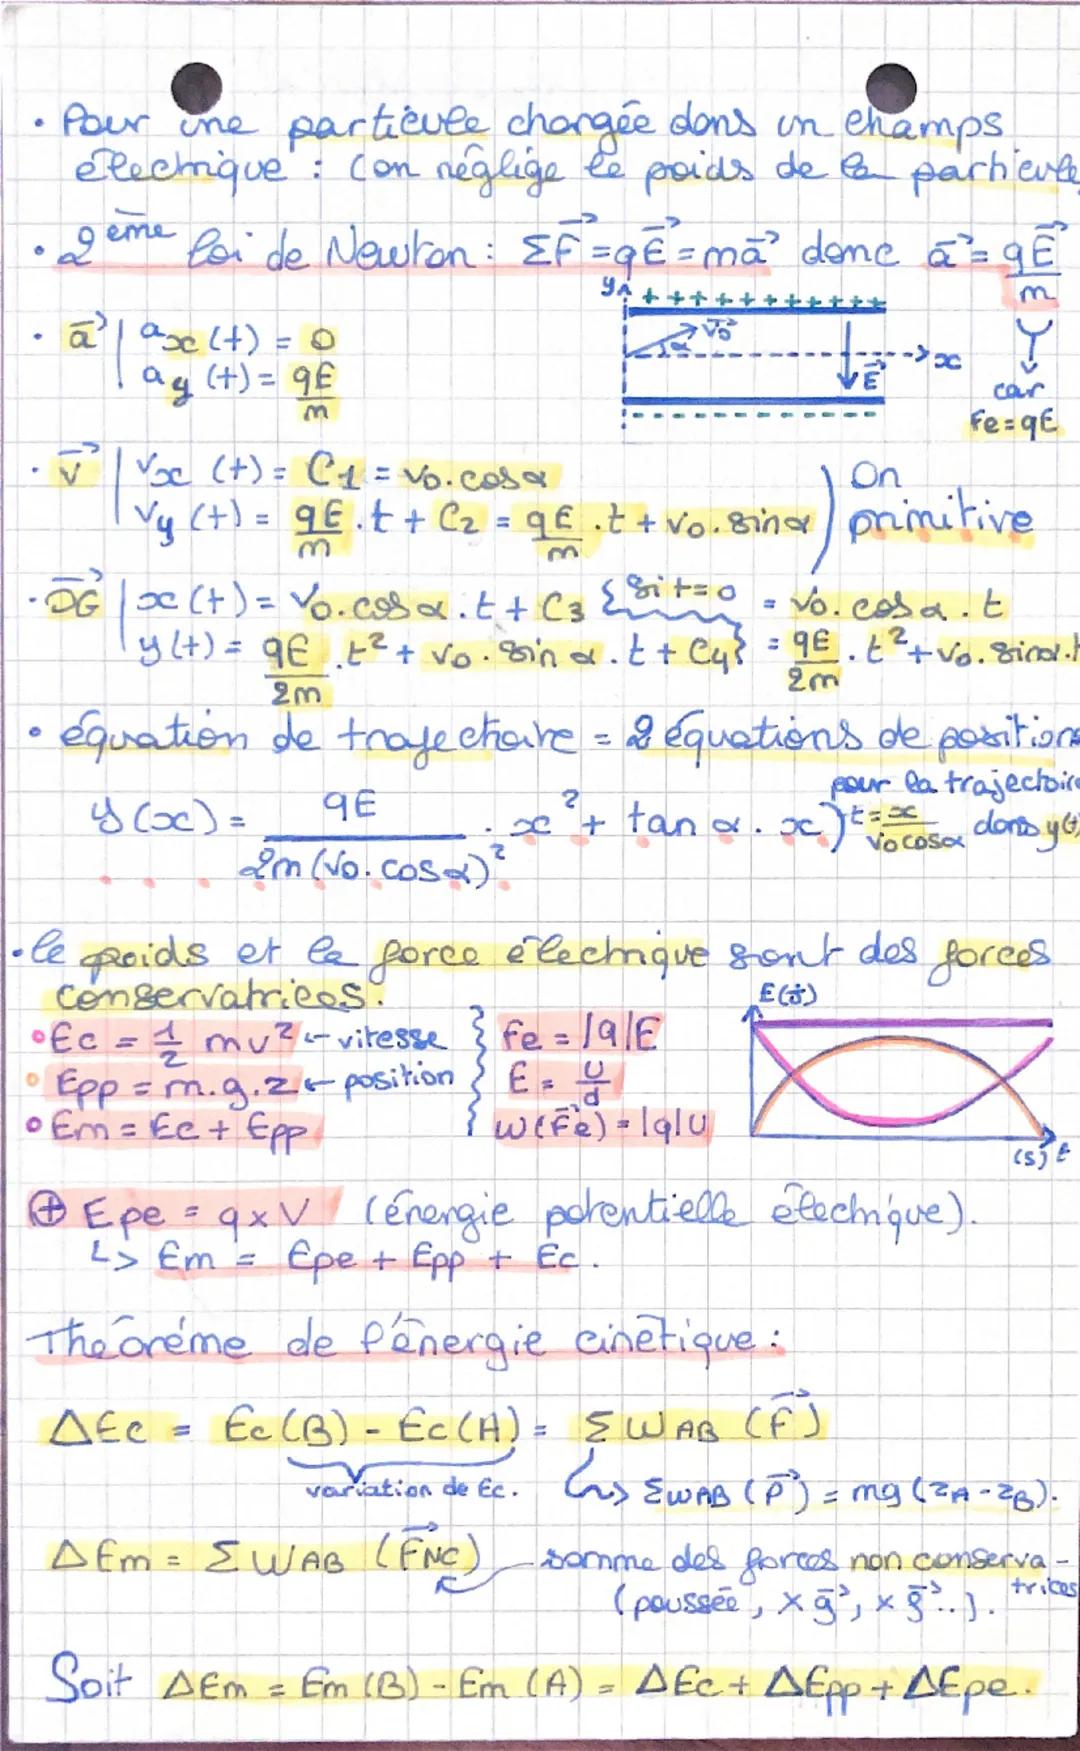 • Pour une particule chargée dans un champs
électrique : (on néglige le poids de la particule
• 2ème loi de Newton : ΣF⃗ = qE⃗ = ma⃗ donc a⃗ = qE⃗/m
y + + + + + + + + + + +
• a⃗ | ax(t) = 0
ay(t) = qE/m
v0⃗ α x E⃗
- - - - - - - - - - -
car
Fe = qE
• v⃗ | vx(t) = C1 = v0.cosα
vy(t) = qE/m .t + C2 = qE/m .t + v0.sinα
) On primitive
• OG⃗ | x(t) = v0.cosα.t + C3 { si t=0 = v0.cosα.t
y(t) = qE/2m .t² + v0.sinα.t + C4 } = qE/2m .t² + v0.sinα.t
• équation de trajectoire = 2 équations de positions
pour la trajectoire
y(x) = qE/2m(v0.cosα)² . x² + tanα.x ) t = x/v0cosα dans y(t)
• le poids et la force électrique sont des forces
conservatrices.
• Ec = 1/2 mv² ← vitesse
• Epp = m.g.z ← position
• Em = Ec + Epp
Fe = |q|E
E = U/d
W(Fe⃗) = |q|U
E(J)
(s) t
⊕ Epe = q x V (énergie potentielle électrique).
↳ Em = Epe + Epp + Ec.
Théoréme de l'énergie cinétique :
ΔEc = Ec(B) - Ec(A) = Σ WAB (F⃗)
variation de Ec. ↳ ΣWAB (P⃗) = mg (zA - zB).
ΔEm = Σ WAB (FNC⃗) somme des forces non conserva-
trices
(poussée, x g⃗, x f⃗..).
Soit ΔEm = Em (B) - Em (A) = ΔEc + ΔEpp + ΔEpe.